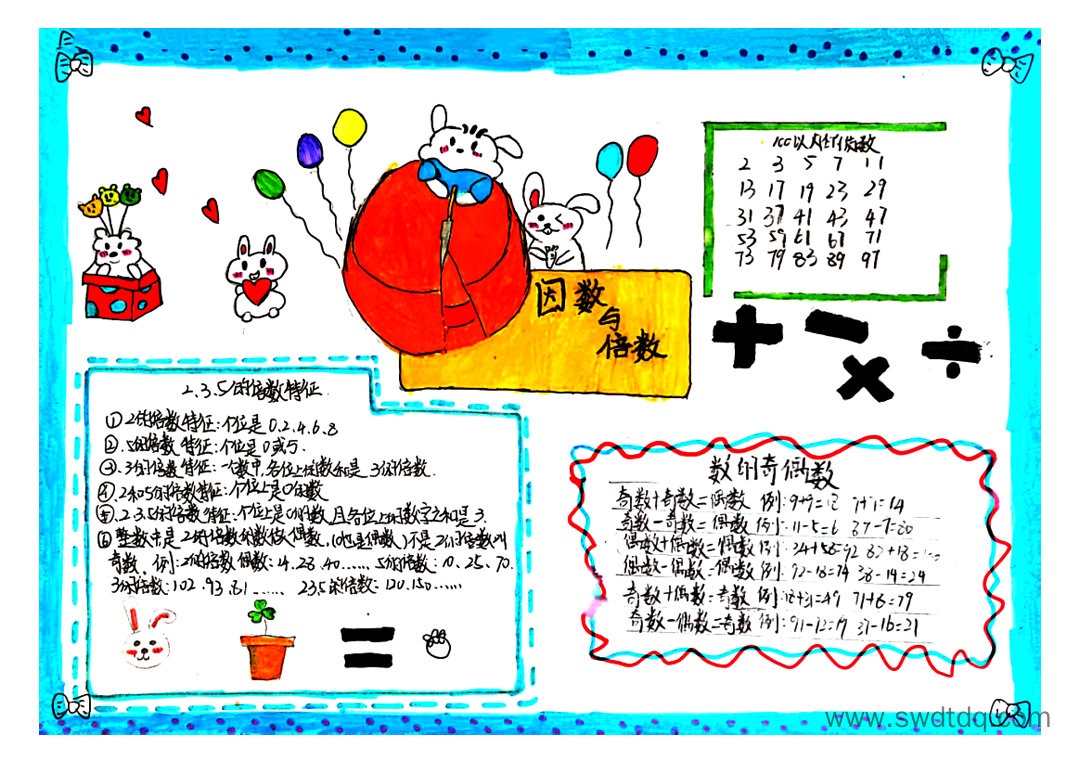 因数
与
倍数
100以内的质数
2 3 5 7 11
13 17 19 23 29
31 37 41 43 47
53 59 61 67 71
73 79 83 89 97
2.3.5的倍数特征
①2的倍数特征:个位是0.2.4.6.8
②.5的倍数特征:个位是0或5.
③.3的倍数特征:一个数中,各位上的数和是3的倍数.
④2和5的倍数特征:个位上是0的数
⑤.2.3.5的倍数特征:个位上是0的数,且各位上的数字之和是3.
⑥整数中是2的倍数的数做偶数,(0也是偶数)不是2的倍数叫
奇数.例:2的倍数偶数:14.28.40...... 5的倍数:10.25.70.
3的倍数:102.93.81...... 2.3.5的倍数:120.150......
数的奇偶数
奇数+奇数=偶数 例:
奇数-奇数=偶数 例:11-5=6
偶数+偶数=偶数 例:34+58=92
偶数-偶数=偶数 例:92-18=74 38-14=24
奇数+偶数=奇数 例:18+31=49 71+8=79
奇数-偶数=奇数 例: 37-16=21
www.swdtdq.com